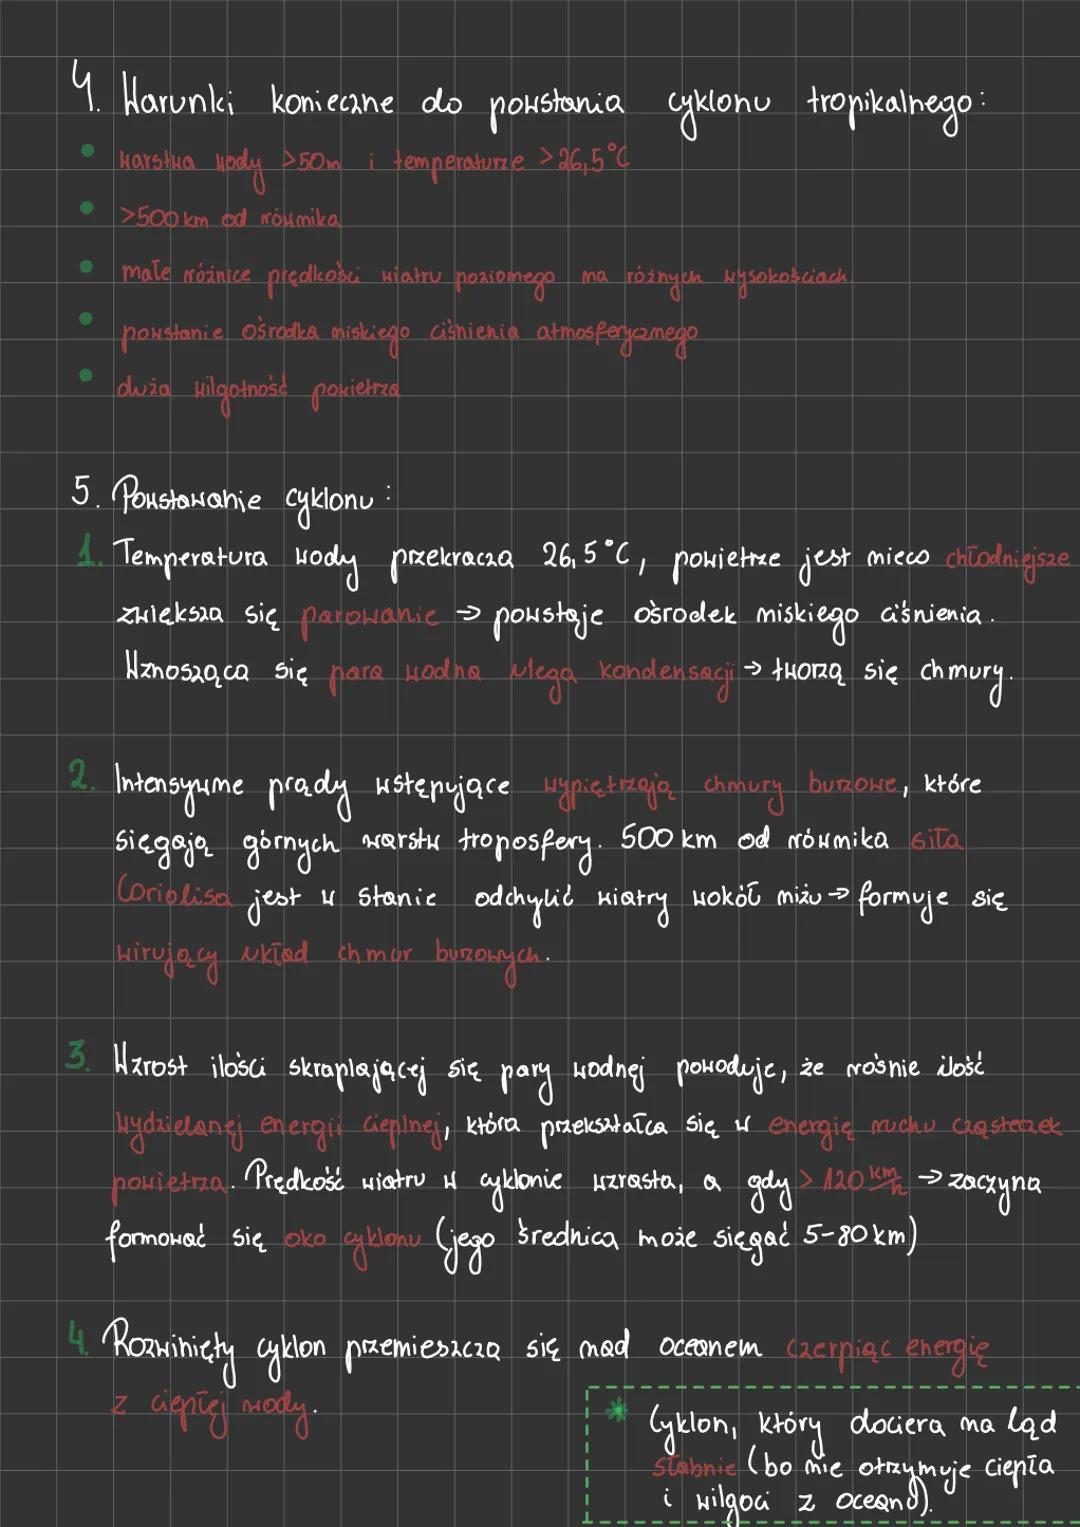 4. Warunki konieczne do powstania cyklonu tropikalnego:
• warstwa wody >50m i temperaturze >26,5°C
• >500 km od równika
• małe różnice prędkości wiatru poziomego na różnych wysokościach
• powstanie ośrodka niskiego ciśnienia atmosferycznego
• duża wilgotność powietrza
5. Powstawanie cyklonu:
1. Temperatura wody przekracza 26,5°C, powietrze jest nieco chłodniejsze
zwiększa się parowanie → powstaje ośrodek niskiego ciśnienia.
Wznosząca się para wodna ulega kondensacji → tworzą się chmury.
2. Intensywne prądy wstępujące wypiętrzają chmury burzowe, które
sięgają górnych warstw troposfery. 500 km od równika siła
Coriolisa jest w stanie odchylić wiatry wokół niżu → formuje się
wirujący układ chmur burzowych.
3. Wzrost ilości skraplającej się pary wodnej powoduje, że rośnie ilość
wydzielanej energii cieplnej, która przekształca się w energię ruchu cząsteczek
powietrza. Prędkość wiatru w cyklonie wzrasta, a gdy > 120 km/h → zaczyna
formować się oko cyklonu (jego średnica może sięgać 5-80 km)
4. Rozwinięty cyklon przemieszcza się nad oceanem czerpiąc energię
z ciepłej wody.
* Cyklon, który dociera na ląd
słabnie (bo nie otrzymuje ciepła
i wilgoci z oceanu).